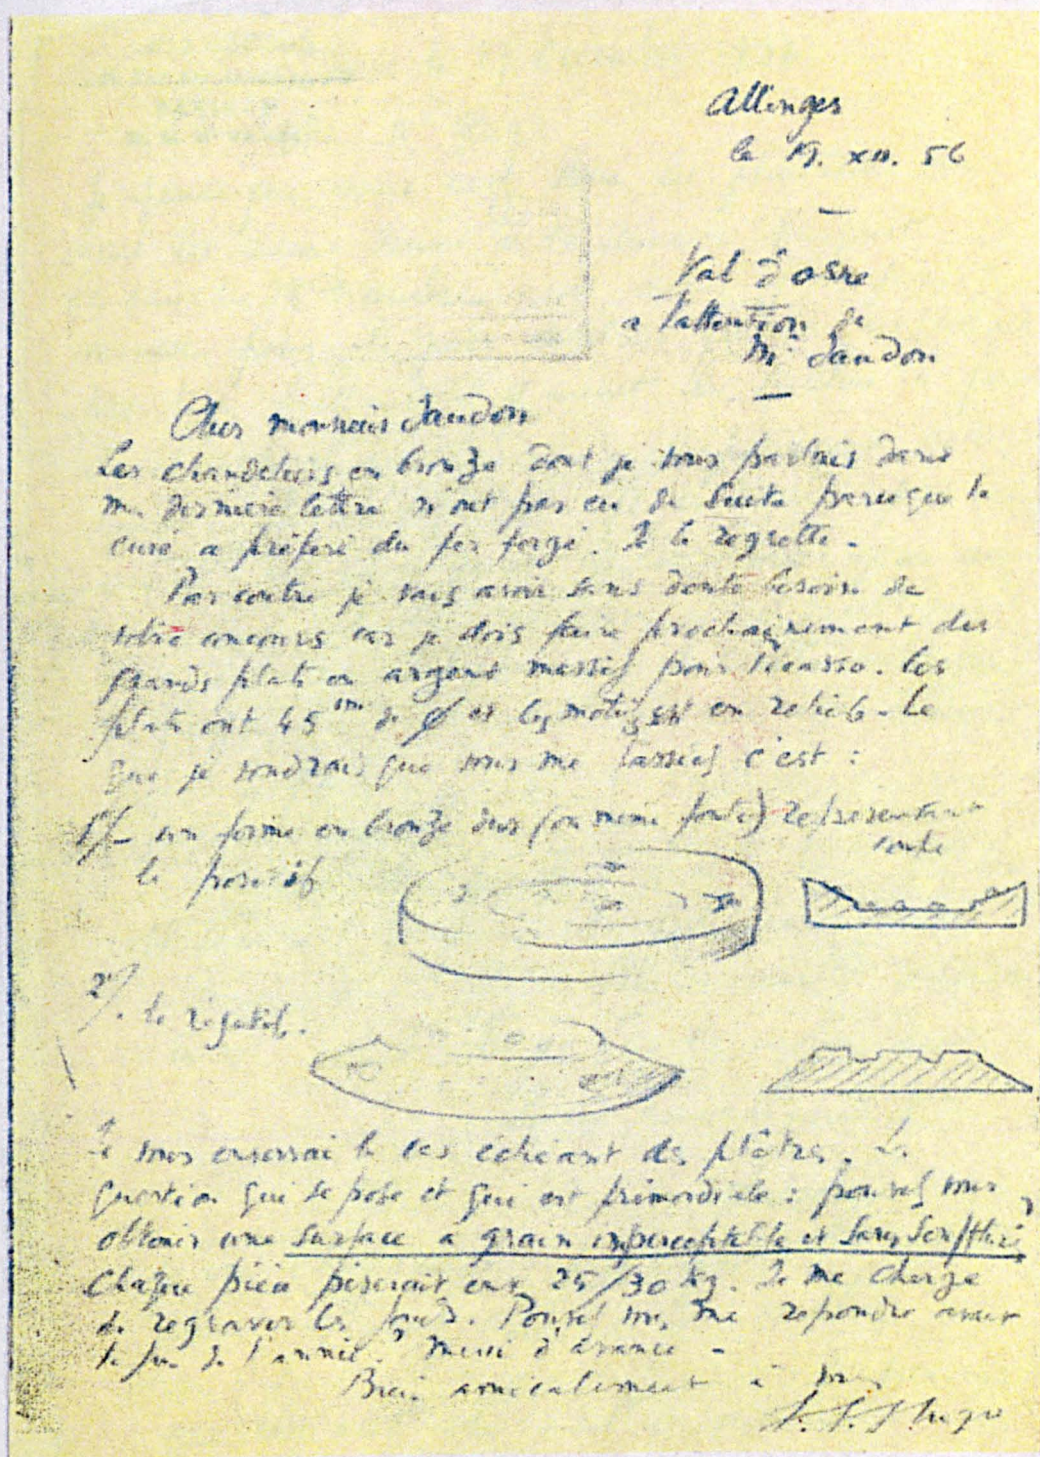 Allinges
le 19. XII. 56
Val d'osne
a l'attention de
Mr Jaudon
Cher monsieur Jaudon
Les chandeliers en bronze dont je vous parlais dans
ma dernière lettre n'ont pas eu de suite parce que le
curé a préféré du fer forgé. Je le regrette.
Par contre je vais avoir sans doute besoin de
votre concours car je dois faire prochainement des
grands plats en argent massif pour Picasso. Les
plats ont 45 cm de ø et les motifs sont en relief. Ce
que je voudrais que vous me fassiez c'est :
1°/ un forme en bronze dur (ou même fonte) représentant
le positif
coupe
2°/. le négatif.
Je vous enverrai le cas échéant des plâtres. La
question qui se pose et qui est primordiale : pouvez vous
obtenir une surface a grain imperceptible et sans soufflures ?
Chaque pièce pèserait env 25/30 kg. Je me charge
de regraver les fonds. Pouvez vous me répondre avant
la fin de l'année ? Merci d'avance -
Bien amicalement à vous
Hugo